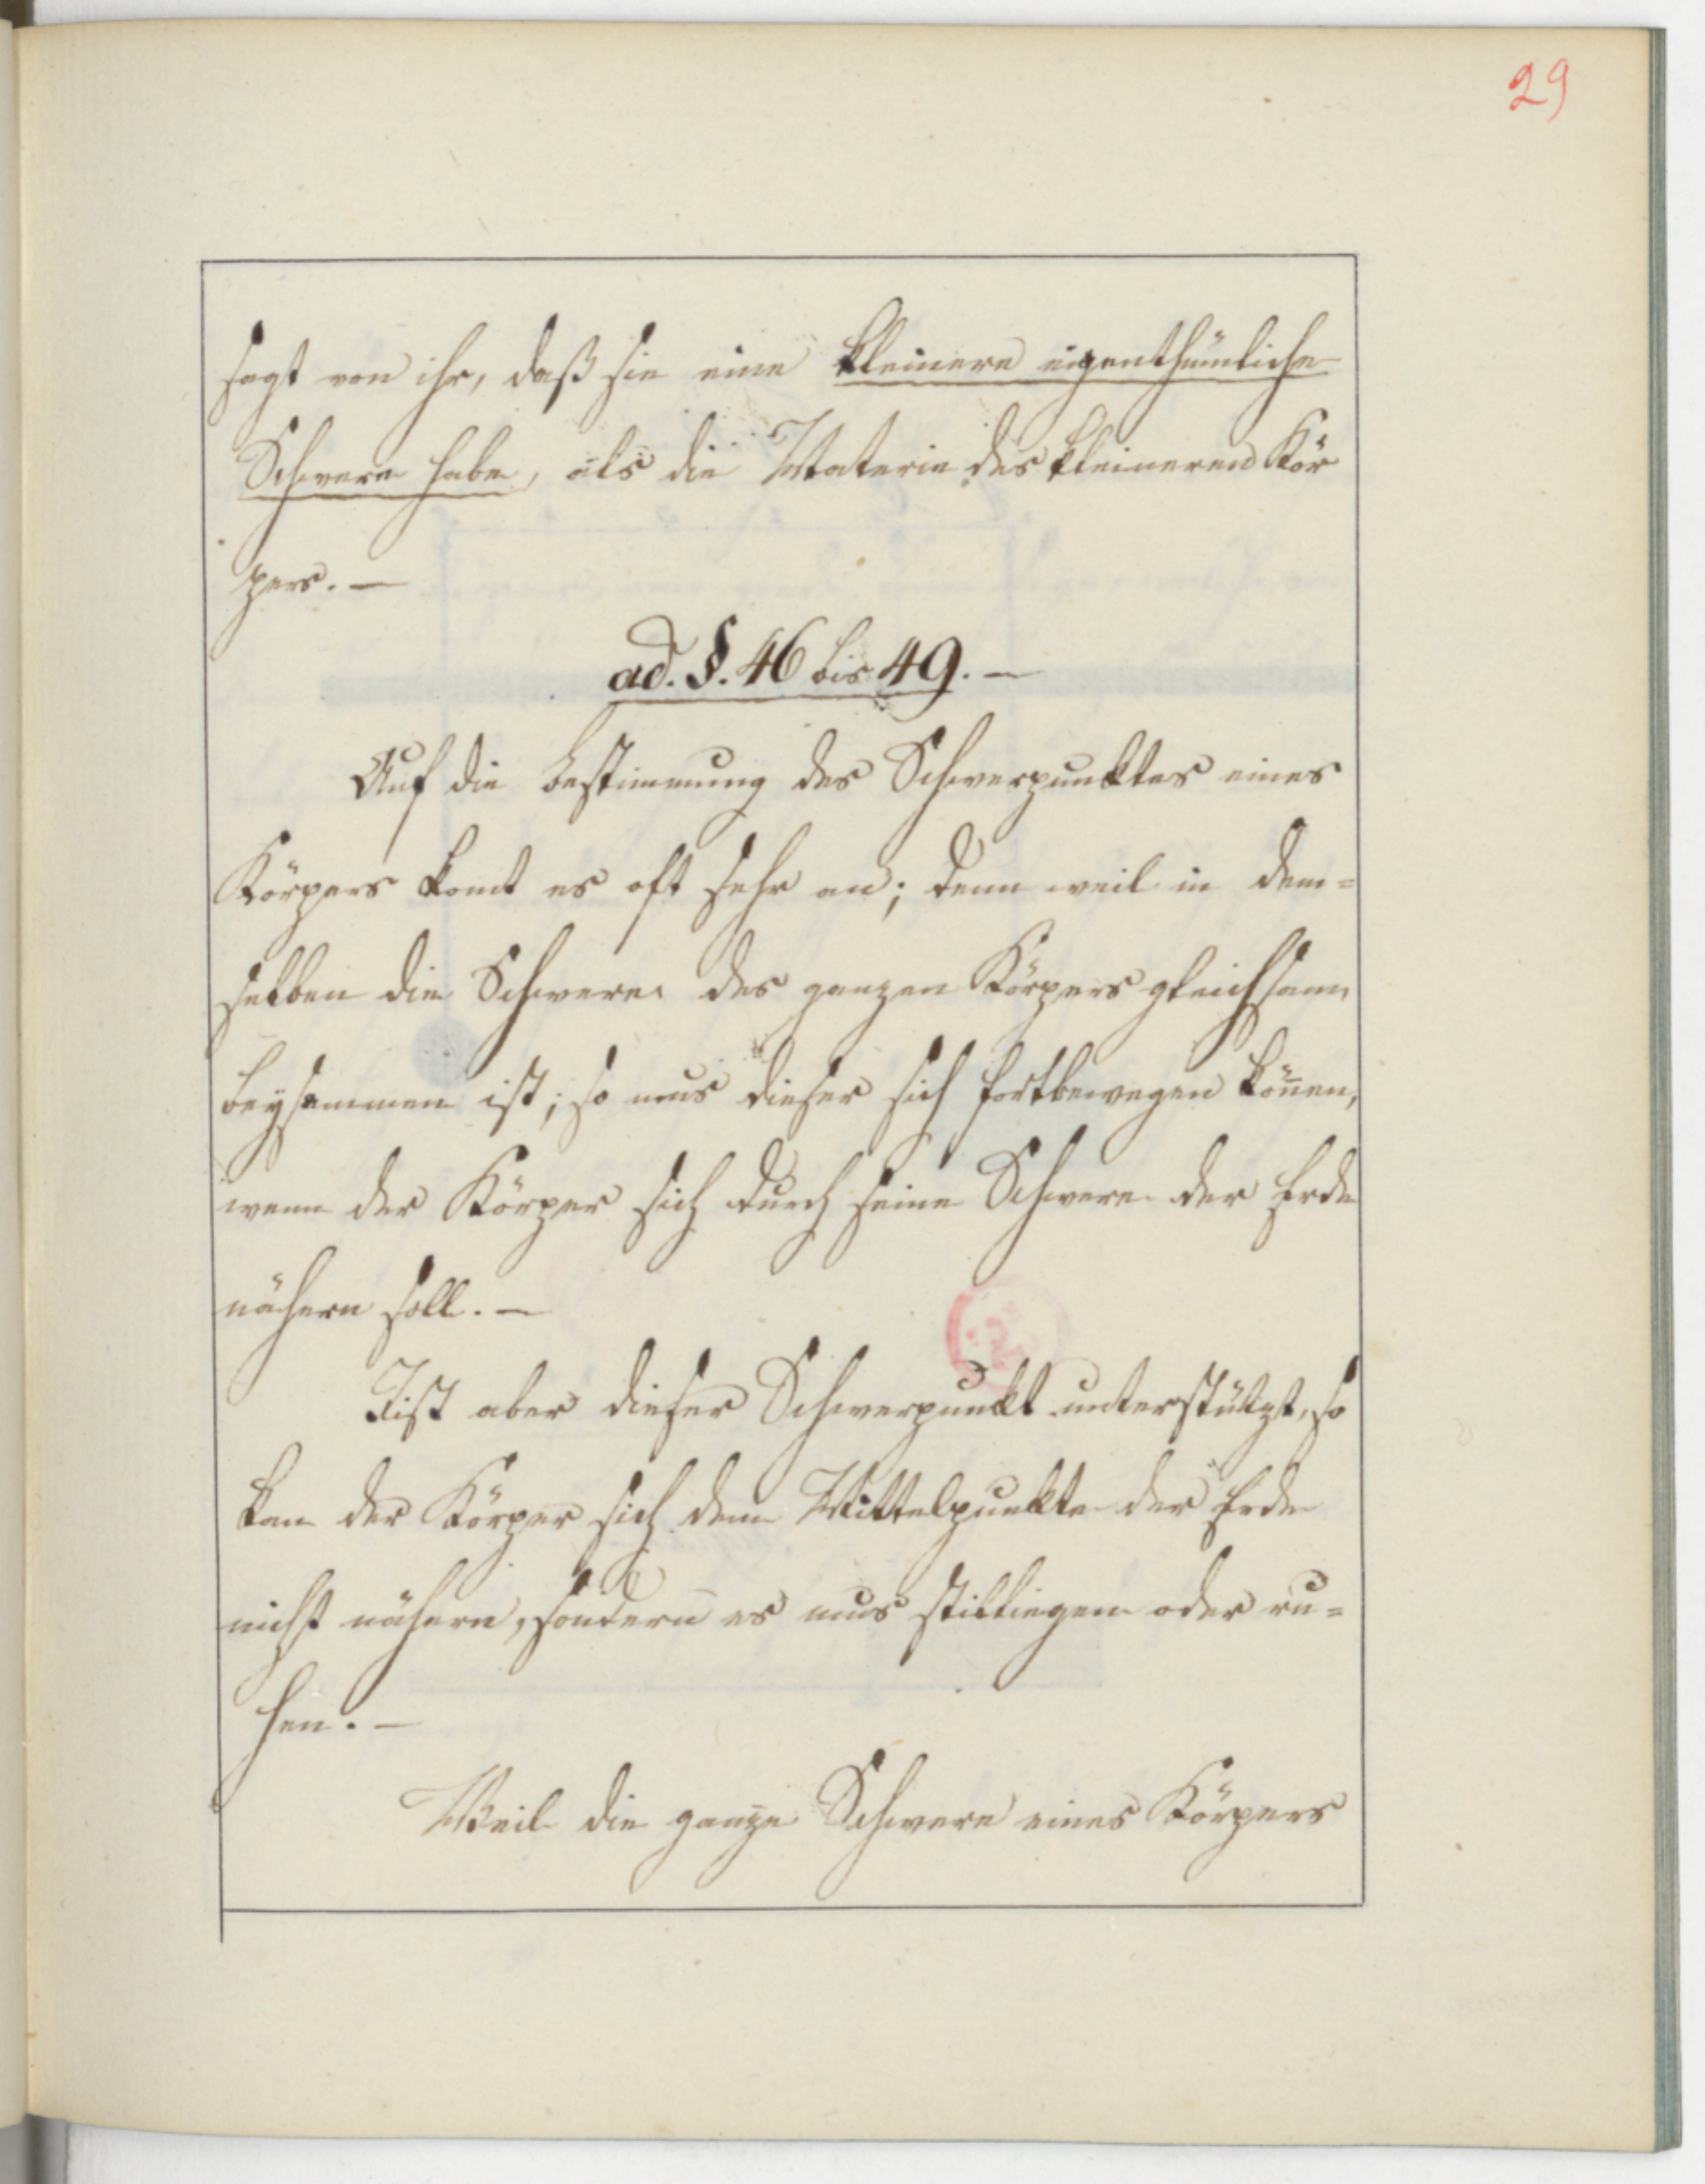 29
sagt von ihr, daß sie eine kleinere eigenthümliche
Schwere habe, als die Materie des kleineren Kör
pers. —
ad. §. 46 bis 49. —
Auf die Bestimmung des Schwerpunktes eines
Körpers komt es oft sehr an; denn weil in dem=
selben die Schwere des ganzen Körpers gleichsam
beysammen ist; so mus dieser sich fortbewegen kön̄en,
wenn der Körper sich durch seine Schwere der Erde
nähern soll. —
Ist aber dieser Schwerpunkt unterstützt, so
kan der Körper sich dem Mittelpunkte der Erde
nicht nähern, sondern es mus stilliegen oder ru=
hen. —
Weil die ganze Schwere eines Körpers